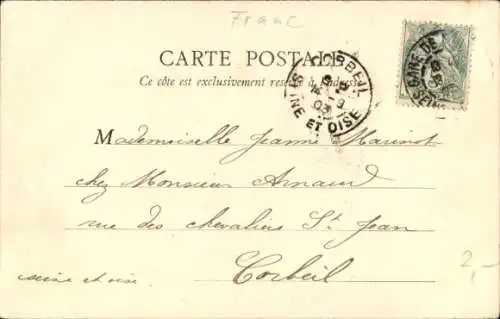 Franc
CARTE POSTALE
Ce côté est exclusivement réservé à l'adresse
CORBEIL
SEINE ET OISE
03
GARE DE
SEINE
Mademoiselle Jeanne Marinot
chez Monsieur Arnaud
rue des chevaliers St Jean
Corbeil
seine et oise
2,-